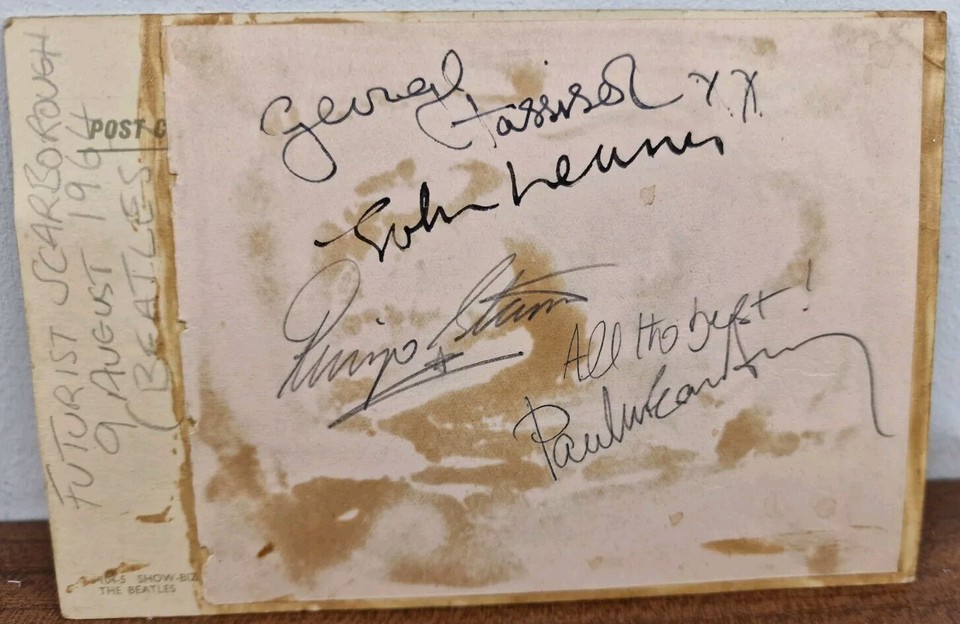 FUTURIST SCARBOROUGH
9 AUGUST 1964
(BEATLES)
POST C
George Harrison xx
John Lennon
Ringo Starr
All the best!
Paul McCartney
SHOW-BIZ
THE BEATLES